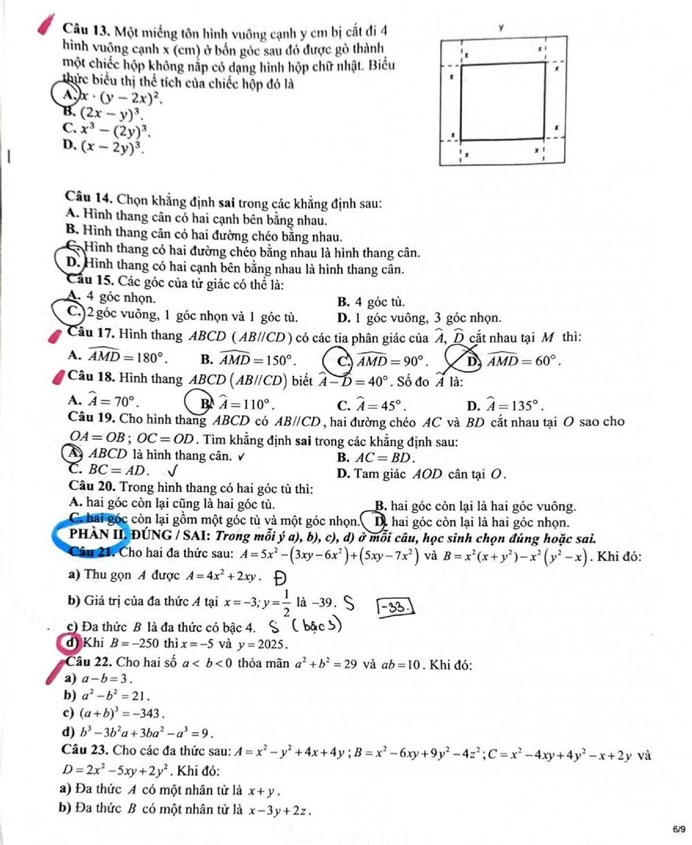 Câu 13. Một miếng tôn hình vuông cạnh y cm bị cắt đi 4
hình vuông cạnh x (cm) ở bốn góc sau đó được gò thành
một chiếc hộp không nắp có dạng hình hộp chữ nhật. Biểu
thức biểu thị thể tích của chiếc hộp đó là
A. x · (y − 2x)².
B. (2x − y)³.
C. x³ − (2y)³.
D. (x − 2y)³.
y
x x
x x
x x
x x
Câu 14. Chọn khẳng định sai trong các khẳng định sau:
A. Hình thang cân có hai cạnh bên bằng nhau.
B. Hình thang cân có hai đường chéo bằng nhau.
C. Hình thang có hai đường chéo bằng nhau là hình thang cân.
D. Hình thang có hai cạnh bên bằng nhau là hình thang cân.
Câu 15. Các góc của tứ giác có thể là:
A. 4 góc nhọn. B. 4 góc tù.
C. 2 góc vuông, 1 góc nhọn và 1 góc tù. D. 1 góc vuông, 3 góc nhọn.
Câu 17. Hình thang ABCD (AB//CD) có các tia phân giác của Â, D̂ cắt nhau tại M thì:
A. AMD = 180°. B. AMD = 150°. C. AMD = 90°. D. AMD = 60°.
Câu 18. Hình thang ABCD (AB//CD) biết Â − D̂ = 40°. Số đo Â là:
A. Â = 70°. B. Â = 110°. C. Â = 45°. D. Â = 135°.
Câu 19. Cho hình thang ABCD có AB//CD, hai đường chéo AC và BD cắt nhau tại O sao cho
OA = OB; OC = OD. Tìm khẳng định sai trong các khẳng định sau:
A. ABCD là hình thang cân. ✓ B. AC = BD.
C. BC = AD. ✓ D. Tam giác AOD cân tại O.
Câu 20. Trong hình thang có hai góc tù thì:
A. hai góc còn lại cũng là hai góc tù. B. hai góc còn lại là hai góc vuông.
C. hai góc còn lại gồm một góc tù và một góc nhọn. D. hai góc còn lại là hai góc nhọn.
PHẦN II. ĐÚNG / SAI: Trong mỗi ý a), b), c), d) ở mỗi câu, học sinh chọn đúng hoặc sai.
Câu 21. Cho hai đa thức sau: A = 5x² − (3xy − 6x²) + (5xy − 7x²) và B = x²(x + y²) − x²(y² − x). Khi đó:
a) Thu gọn A được A = 4x² + 2xy. Đ
b) Giá trị của đa thức A tại x = −3; y = 1/2 là −39. S -33.
c) Đa thức B là đa thức có bậc 4. S (bậc 3)
d) Khi B = −250 thì x = −5 và y = 2025.
Câu 22. Cho hai số a < b < 0 thỏa mãn a² + b² = 29 và ab = 10. Khi đó:
a) a − b = 3.
b) a² − b² = 21.
c) (a + b)³ = −343.
d) b³ − 3b²a + 3ba² − a³ = 9.
Câu 23. Cho các đa thức sau: A = x² − y² + 4x + 4y; B = x² − 6xy + 9y² − 4z²; C = x² − 4xy + 4y² − x + 2y và
D = 2x² − 5xy + 2y². Khi đó:
a) Đa thức A có một nhân tử là x + y.
b) Đa thức B có một nhân tử là x − 3y + 2z.
6/9